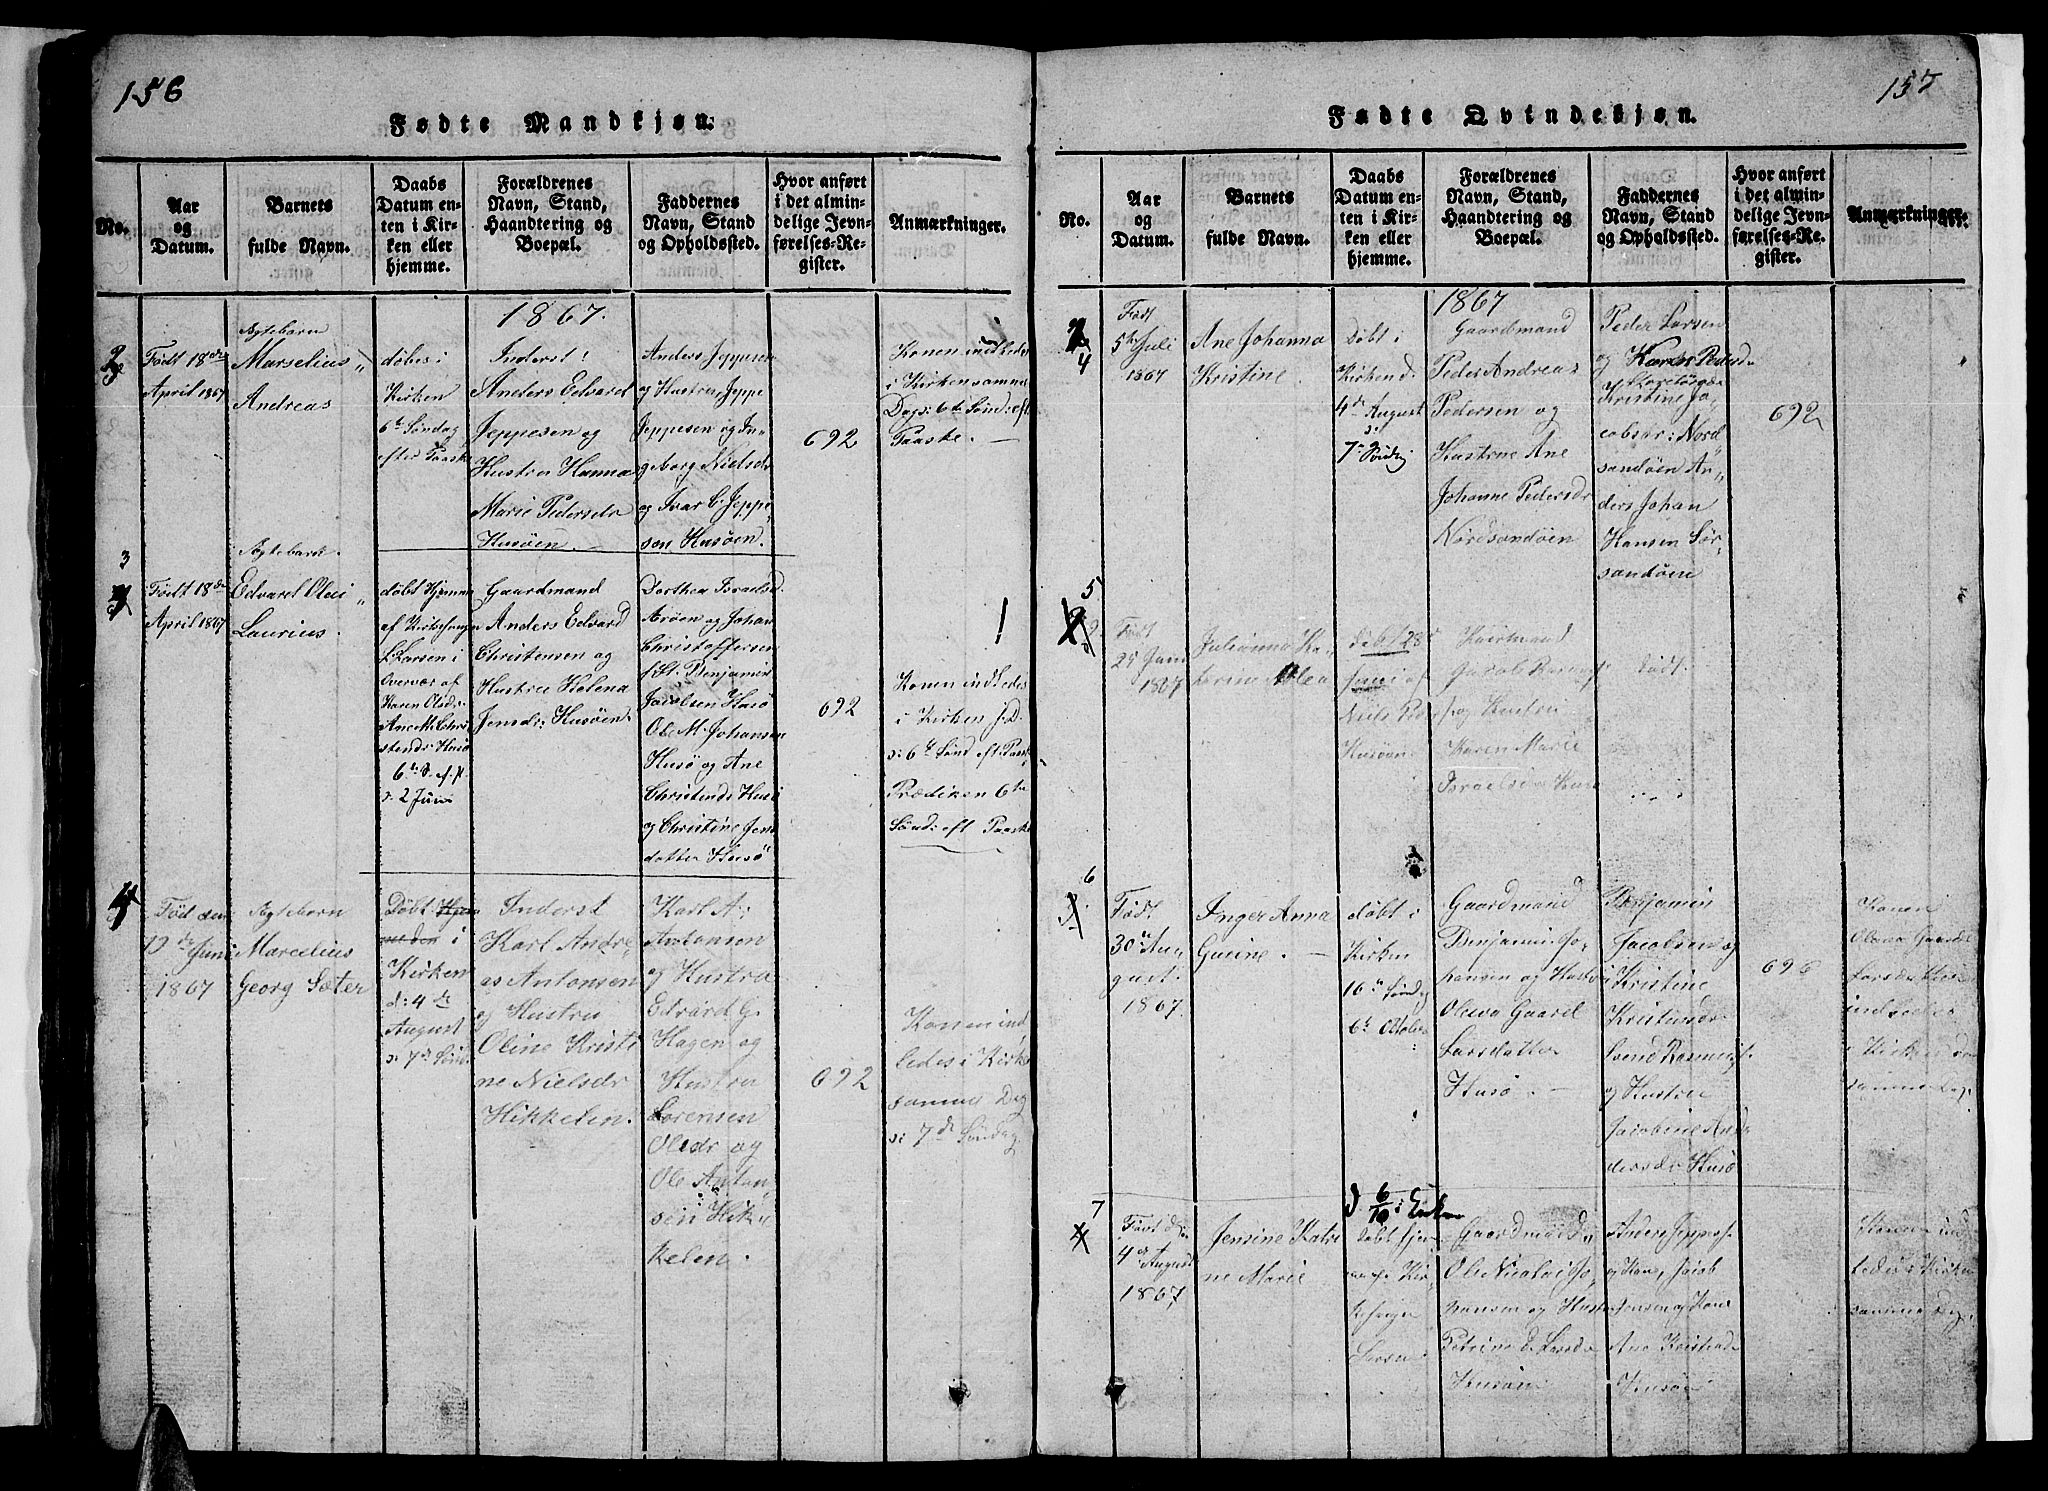 156
Fødte Mandkjøn.
No.
Aar
og
Datum.
Barnets
fulde Navn.
Daabs
Datum en-
ten i Kir-
ken eller
hjemme.
Forældrenes
Navn, Stand,
Haandtering og
Boepæl.
Faddernes
Navn, Stand
og Opholdssted.
Hvor anført
i det almin-
delige Jevn-
førelses-Re
gister.
Anmærkninger.
1867.
2
Født 18de
April 1867
Ægtebarn
Marselius
Andreas
døbes i
Kirken
6te Søndag
efter Paaske
Inderst
Anders Edvard
Jeppesen og
Hustru Hanna
Marie Pedersdr
Husøen.
Anders Jeppesen
og Hustru, Jeppe
Jeppesen og In-
geborg Nielsdr
og Ivar C. Jeppe-
sen Husøen.
692
Konen indledes
i Kirken samme
Dag s: 6te Sønd: eft
Paaske.
3
Født 18de
April 1867
Ægtebarn.
Edvard Olai
Laurius.
døbt Hjemme
af Kirkesanger
L Larsen i
Overvær af
Karen Olsd:
Ane M. Chri-
stensdr Husø
6te S. ef. p.
d. 2 Juni
Gaardmand
Anders Edvard
Christensen og
Hustru Helena
Jensdr: Husøen
Dorthea Israelsd
Arøen og Johan
Christoffersen
f St. Benjamin
Jacobsen Husø
Ole M. Johansen
Husø og Ane
Christensd Husø
og Christine Jens
datter Husø
692
Konen indledes
i Kirken
s: 6te Sønd eft Paask
Prædiken 6te
Sønd: eft Paaske
4
Fød den
19de Juni
1867
Ægtebarn
Marcelius
Georg Sæter
Døbt i
Kirken
d: 4de
August
s: 7de Sønd
Inderst
Karl Andre-
as Antonsen
og Hustru
Oline Kristi
ne Nielsdr
Hikkelen.
Karl A.
Antonsen
og Hustru
Edvard G.
Hagen og
Hustru
Sørensen
Olsdr og
Ole Anton-
sen Hik-
kelen.
692
Konen ind
ledes i Kirke
samme Dag
s: 7de Søndag
157
Fødte Qvindekjøn.
No.
Aar
og
Datum.
Barnets
fulde Navn.
Daabs
Datum en-
ten i Kir-
ken eller
hjemme.
Forældrenes
Navn, Stand,
Haandtering og
Boepæl.
Faddernes
Navn, Stand
og Opholdssted.
Hvor anført
i det almin-
delige Jevn-
førelses-Re
gister.
Anmærkninger.
1867
4
Født
5te Juli
1867
Ane Johanna
Kristine
Døbt i
Kirken d.
4de August
s:
7de Søndag
Gaardmand
Peder Andreas
Pedersen og
Hustrue Ane
Johanne Pedersdr
Nordsandøen
Peder Larsen
og Karen Pedersdr
Kristine Ja-
cobsdr: Nord
sandøen An-
ders Johan
Hansen Sør-
sandøen
692
5
Født
25 Juni
1867
Julianna Ka-
terine
døbt 28de
Juni af
Niels
Husøen
og Hustru
Karen Marie
Israelsdr Husø
død.
6
Født
30te Au-
gust.
1867.
Inger Anna
Gurine.
døbt i
Kirken
16de Søndag
6te Octobe
Gaardmand
Benjamin Jo-
hansen og Hustru
Oleva Gaard
Larsdatter
Husø.
Benjamin
Jacobsen og
Kristine
Kristensdr
Svend Rasmus
og Hustru
Jacobine An-
dersdr Husø
696
Konen
Oleva Gaard
Larsdatter
indledes
i Kirken
samme Dag.
7
Født d.
4de August
1867
Jensine Katri
ne Marie
d. 6/10 i Kirken
døbt hjem-
me af Kir-
kesanger
Larsen
Gaardmand
Ole Nicolai Jo-
hansen og Hustru
Petrine d. Larsdr
Husøen
Anders Jeppes.
og Kone, Jacob
Jensen og Kone
Ane Kristensd
Husøen
Konen ind
ledes i Kirken
samme Dag.